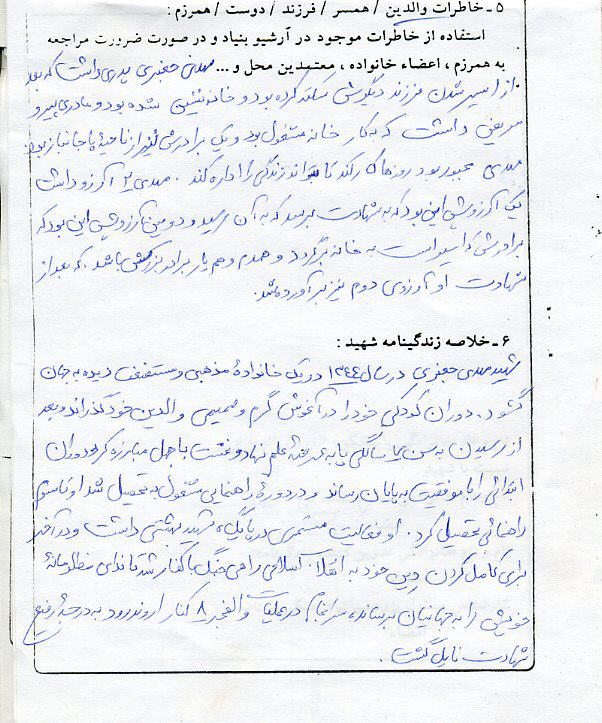 ۵ ـ خاطرات والدین / همسر / فرزند / دوست / همرزم :
استفاده از خاطرات موجود در آرشیو بنیاد و در صورت ضرورت مراجعه
به همرزم ، اعضاء خانواده ، معتمدین محل و ... مهدی جعفری پدری داشت که بعد
از اسیر شدن فرزند دیگرش سکته کرده بود و خانه نشین شده بود و مادری پیر و
مریض داشت که به کار خانه مشغول بود و یک برادرش نیز از ناحیه پا جانباز بود
مهدی مجبور بود روزها کار کند تا بتواند زندگی را اداره کند . مهدی ۲ آرزو داشت
یک آرزویش این بود که به شهادت برسد که به آن رسید و دومین آرزویش این بود که
برادرش که اسیر است به خانه برگردد و همدم و همیار برادر بزرگش باشد که بعد از
شهادت او آرزوی دوم نیز برآورده شد.
۶ ـ خلاصه زندگینامه شهید :
شهید مهدی جعفری در سال ۱۳۴۴ در یک خانوادهٔ مذهبی و مستضعف دیده به جهان
گشود . دوران کودکی خود را در آغوش گرم و صمیمی والدین خود گذراند و بعد
از رسیدن به سن ۷ سالگی پا به عرصهٔ علم نهاد و با جهل مبارزه کرد دوران
ابتدائی را با موفقیت به پایان رساند و در دورهٔ راهنمایی مشغول به تحصیل شد او تا سوم
راهنمائی تحصیل کرد . او فعالیت مستمری در پایگاه شهید بهشتی داشت و در آخر
برای کامل کردن دین خود به انقلاب اسلامی راهی جنگ با کفار شد تا ندای مظلومانهٔ
خویش را به جهانیان برساند ، سرانجام در عملیات والفجر ۸ کنار اروندرود به درجهٔ رفیع
شهادت نایل گشت .